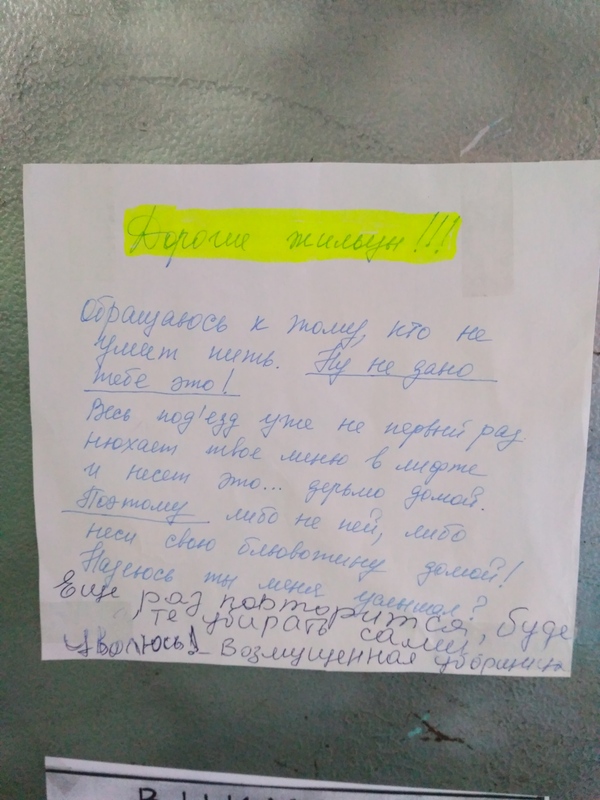 Дорогие жильцы!!!
Обращаюсь к тому, кто не
умеет пить. Ну не дано
тебе это!
Весь под'езд уже не первый раз
нюхает твое меню в лифте
и несет это... дерьмо домой.
Поэтому либо не пей, либо
неси свою блювотину домой!
Надеюсь ты меня услышал?
Еще раз повторится, буде
те убирать сами,
уволюсь! - Возмущенная уборщица